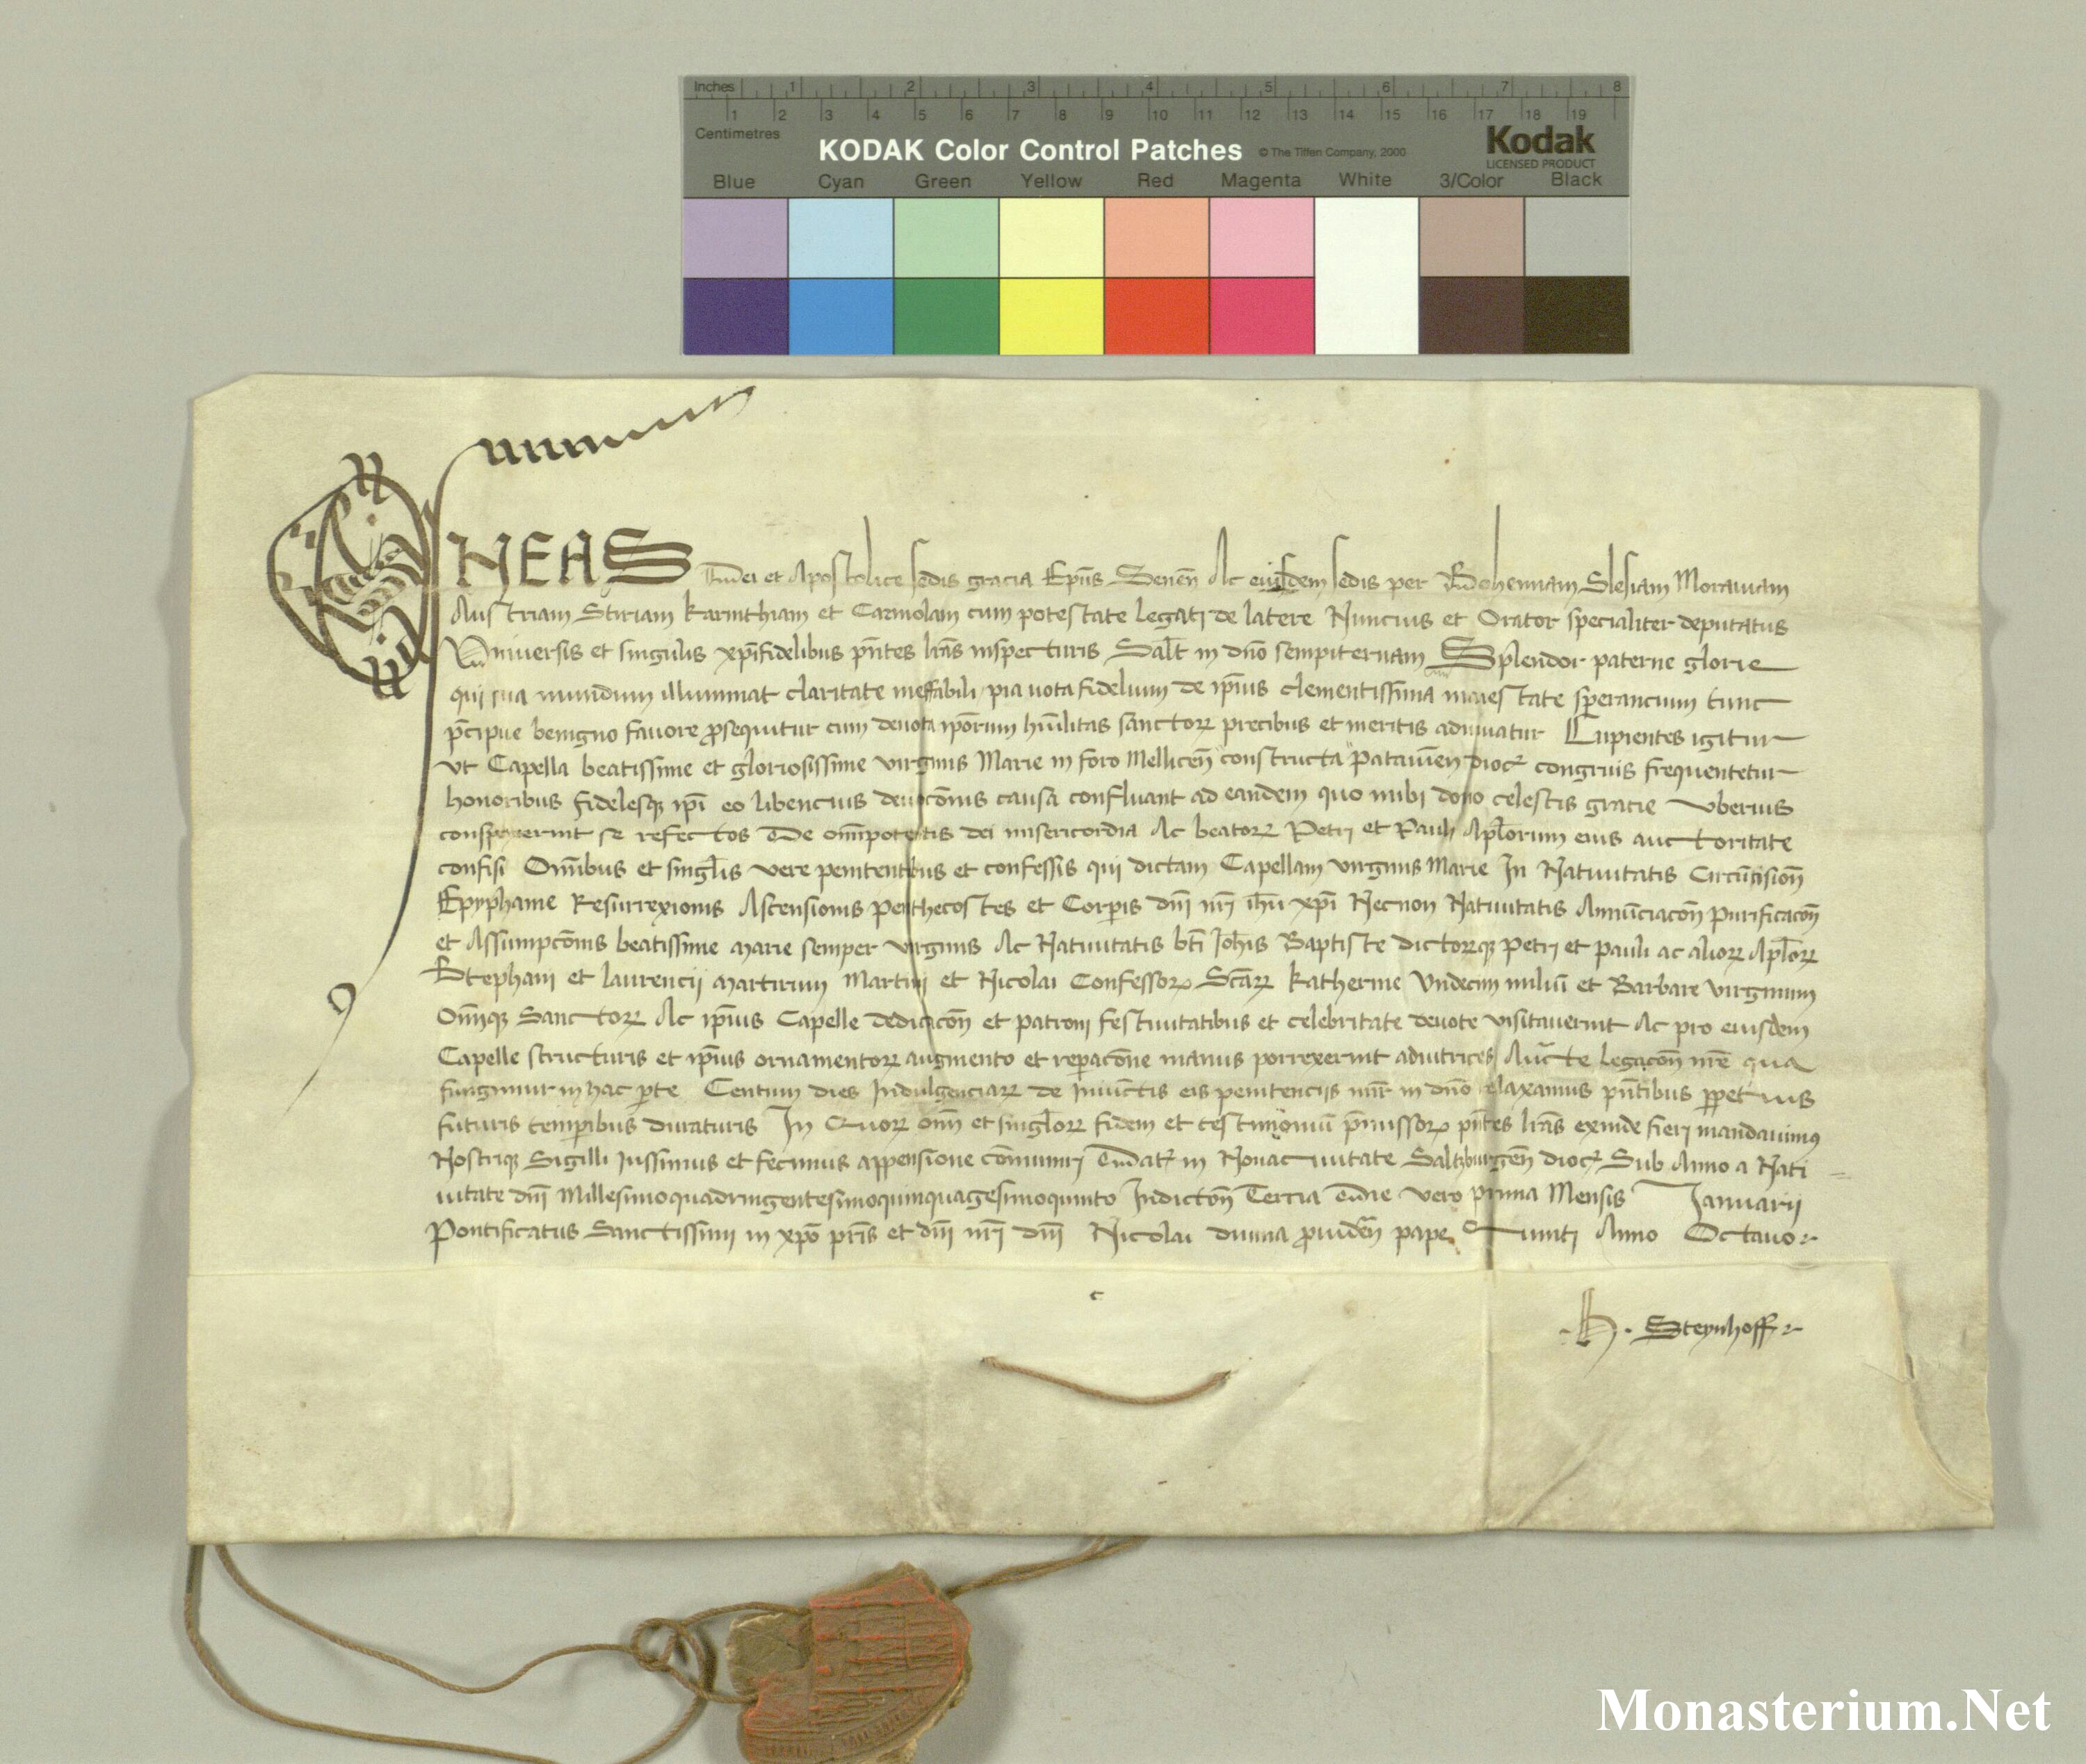 Inches 1 2 3 4 5 6 7 8
1 2 3 4 5 6 7 8 9 10 11 12 13 14 15 16 17 18 19
Centimetres
KODAK Color Control Patches © The Tiffen Company, 2000 Kodak
LICENSED PRODUCT
Blue Cyan Green Yellow Red Magenta White 3/Color Black
ENEAS dei et Apostolice sedis gracia Ep̄us Senen̄ Ac eiusdem sedis per Bohemiam Slesiam Morauiam
Austriam Stiriam Karinthiam et Carniolam cum potestate legati de latere Nuncius et Orator specialiter deputatus
Vniuersis et singulis xp̄ifidelibus pn̄tes lr̄as inspecturis Salt̄ in dn̄o sempiternam Splendor paterne glorie
qui sua mundum illuminat claritate ineffabili pia uota fidelium de ip̄ius clementissima maiestate sperancium tunc
p̄cipue benigno fauore ꝓsequitur cum deuota ip̄orum hūilitas sanctoꝝ precibus et meritis adiuuatur Cupientes igitur
vt Capella beatissime et gloriosissime virginis Marie in foro Mellicen̄ constructa Patauien̄ dioc̄ congruis frequentetur
honoribus fidelesqꝫ ip̄i eo libencius deuoc̄onis causa confluant ad eandem quo inibi dono celestis gracie vberius
conspexerint se refectos De om̄ipotentis dei misericordia Ac beatoꝝ Petri et Pauli Apl̄orum eius auctoritate
confisi Om̄ibus et singl̄is vere penitentibus et confessis qui dictam Capellam virginis Marie In Natiuitatis Circūcision̄
Epyphanie Resurrexionis Ascensionis Penthecostes et Corꝑis dn̄i nr̄i ih̄u xp̄i Necnon Natiuitatis Annūciacōn Purificacōn
et Assumpcōnis beatissime Marie semper virginis Ac Natiuitatis bt̄i Joh̄is Baptiste dictoꝝqꝫ Petri et Pauli ac alioꝝ Apl̄oꝝ
Stephani et laurencij Martirum Martini et Nicolai Confessoꝝ Sc̄aꝝ Katherine Vndecim miliū et Barbare virginum
Om̄iqꝫ Sanctoꝝ Ac ip̄ius Capelle dedicacōn et patroni festiuitatibus et celebritate deuote visitauerint Ac pro eiusdem
Capelle structuris et ip̄ius ornamentoꝝ augmento et reꝑacōne manus porrexerint adiutrices Auc̄te legacōn nr̄e qua
fungimur in hac ꝑte Centum dies Indulgenciaꝝ de Iniūctis eis penitencijs mīr in dn̄o relaxamus pn̄tibus ꝑpetuis
futuris temꝑibus duraturis In Quoꝝ om̄ et singl̄oꝝ fidem et testimoniū p̄missoꝝ pn̄tes lr̄as exinde fieri mandauimus
Nostriqꝫ Sigilli Iussimus et fecimus appensione cōmuniri Dat̄ in Noua ciuitate Saltzburgen̄ dioc̄ Sub Anno a Nati
uitate dn̄i Millesimoquadringentesimoquinquagesimoquinto Indictōn Tercia Die vero prima Mensis Januarij
Pontificatus Sanctissimi in xp̄o pr̄is et dn̄i nr̄i dn̄i Nicolai diuina ꝓuidēn pape Quinti Anno Octauo
.H. Steynhoff
Monasterium.Net